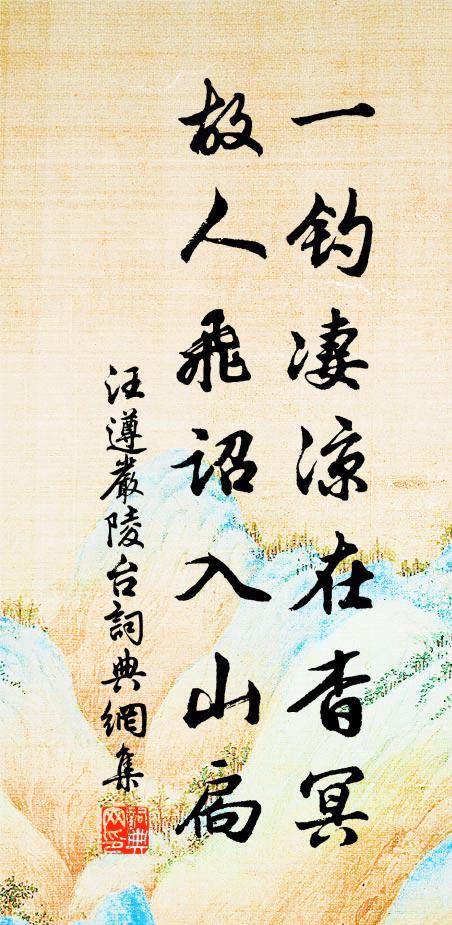 一釣淒涼在杳冥
故人飛詔入山扃
汪遵嚴陵台詞典網集
詞典网印